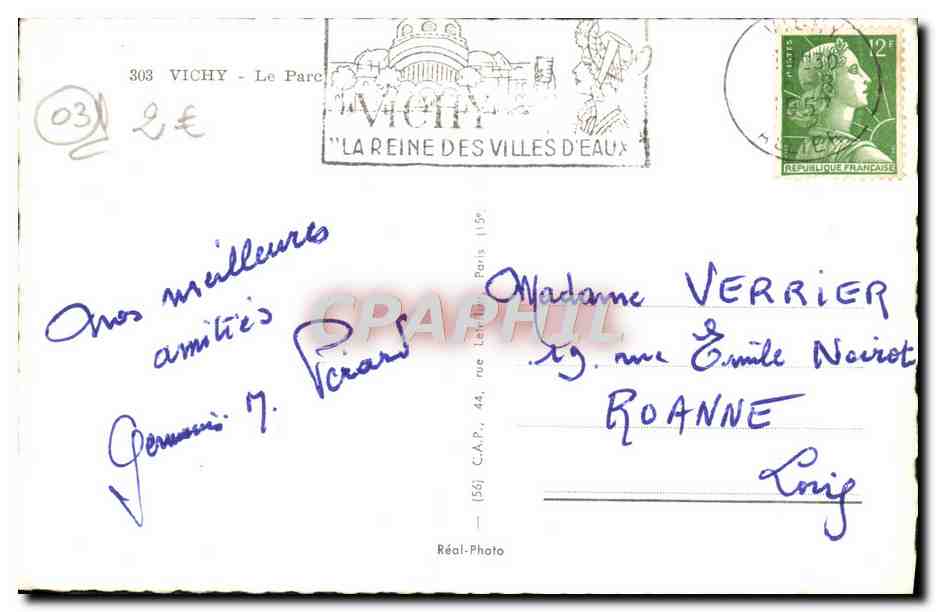 303 VICHY - Le Parc
03
2 €
VICHY
"LA REINE DES VILLES D'EAUX"
POSTES 12F
RÉPUBLIQUE FRANÇAISE
nos meilleures
amitiés
Germain J. Picard
(56) C.A.P., 44, rue Paris 15e.
Réal-Photo
CPAPHIL
Madame VERRIER
19. rue Emile Noirot
ROANNE
Loire